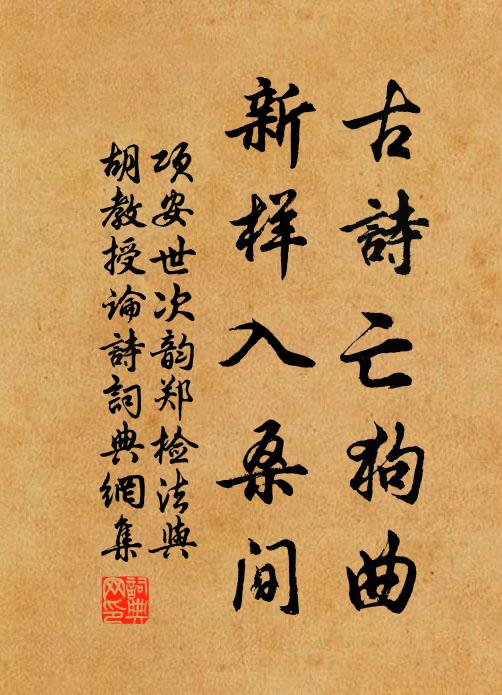 古詩亡狗曲
新样入桑间
项安世次韵郑检法與
胡教授论詩詞典網集
詞典網印